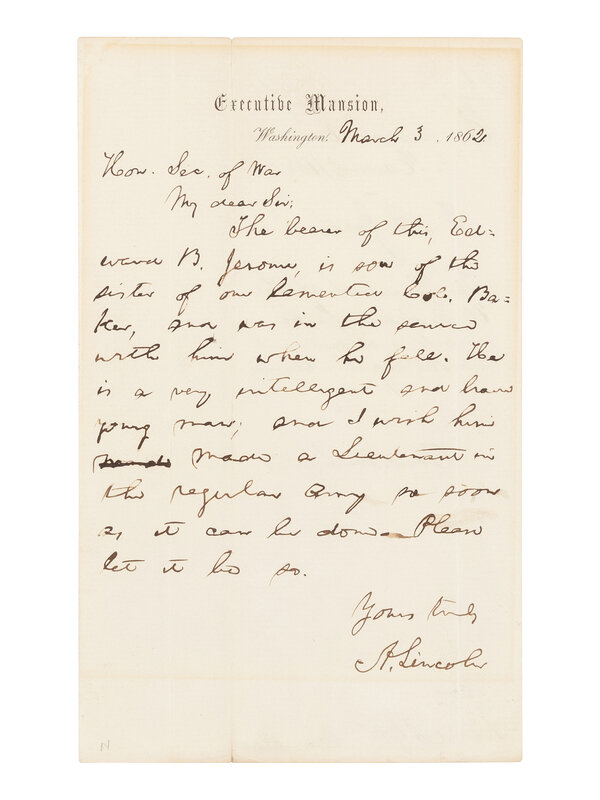 Executive Mansion,
Washington, March 3, 1862
Hon. Sec. of War
My dear Sir:
The bearer of this, Ed=
ward B. Jerome, is son of the
sister of our lamented Col. Ba=
ker, and was in the service
with him when he fell. He
is a very intelligent and brave
young man; and I wish him
made a Lieutenant in
the regular Army so soon
as it can be done. Please
let it be so.
Yours truly
A. Lincoln